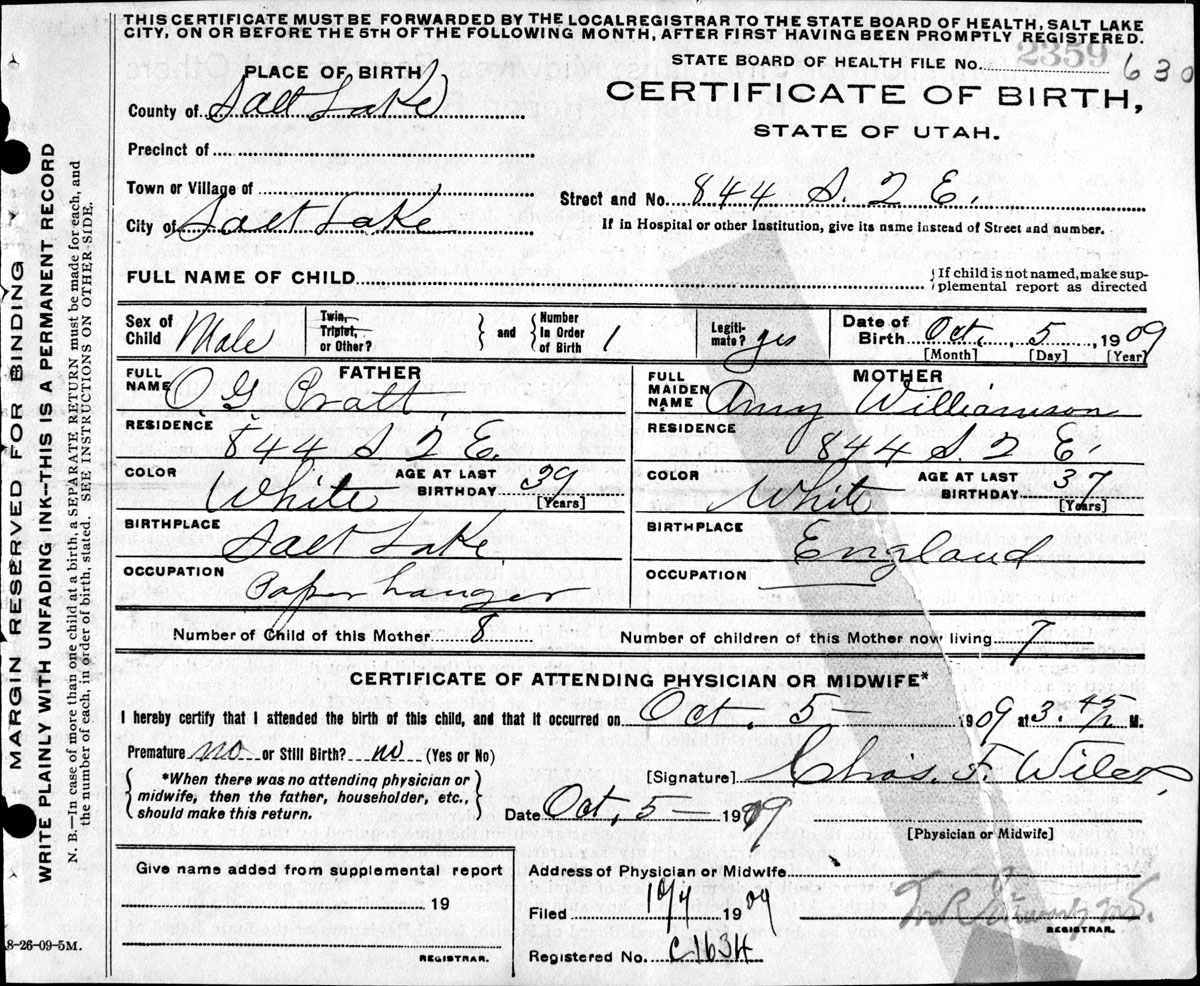 THIS CERTIFICATE MUST BE FORWARDED BY THE LOCAL REGISTRAR TO THE STATE BOARD OF HEALTH, SALT LAKE
CITY, ON OR BEFORE THE 5TH OF THE FOLLOWING MONTH, AFTER FIRST HAVING BEEN PROMPTLY REGISTERED.
2359
STATE BOARD OF HEALTH FILE No. 630
PLACE OF BIRTH
CERTIFICATE OF BIRTH,
STATE OF UTAH.
County of Salt Lake
Precinct of
Town or Village of
Street and No. 844 S. 2 E.
City of Salt Lake
If in Hospital or other Institution, give its name instead of Street and number.
FULL NAME OF CHILD
{If child is not named, make sup-
plemental report as directed
Sex of Child Male
Twin, Triplet, or Other?
and
Number in Order of Birth 1
Legiti-mate? yes
Date of Birth Oct. 5, 1909
[Month] [Day] [Year]
FATHER
FULL NAME O. G. Pratt
RESIDENCE
844 S. 2 E.
COLOR White
AGE AT LAST BIRTHDAY 39
[Years]
BIRTHPLACE
Salt Lake
OCCUPATION
Paper hanger
MOTHER
FULL MAIDEN NAME Amy Williamson
RESIDENCE
844 S. 2 E.
COLOR White
AGE AT LAST BIRTHDAY 37
[Years]
BIRTHPLACE
England
OCCUPATION
Number of Child of this Mother 8
Number of children of this Mother now living 7
CERTIFICATE OF ATTENDING PHYSICIAN OR MIDWIFE*
I hereby certify that I attended the birth of this child, and that it occurred on Oct. 5 1909 at 3.45 M.
Premature no or Still Birth? no (Yes or No)
{*When there was no attending physician or
midwife, then the father, householder, etc.,
should make this return.}
[Signature] Chas. F. Wilcox
Date Oct. 5 1909
[Physician or Midwife]
Give name added from supplemental report
19
REGISTRAR.
Address of Physician or Midwife
Filed 10/7 1909
REGISTRAR.
Registered No. C1634
8-26-09-5M.
MARGIN RESERVED FOR BINDING
WRITE PLAINLY WITH UNFADING INK—THIS IS A PERMANENT RECORD
N. B.—In case of more than one child at a birth, a SEPARATE RETURN must be made for each, and
the number of each, in order of birth, stated. SEE INSTRUCTIONS ON OTHER SIDE.